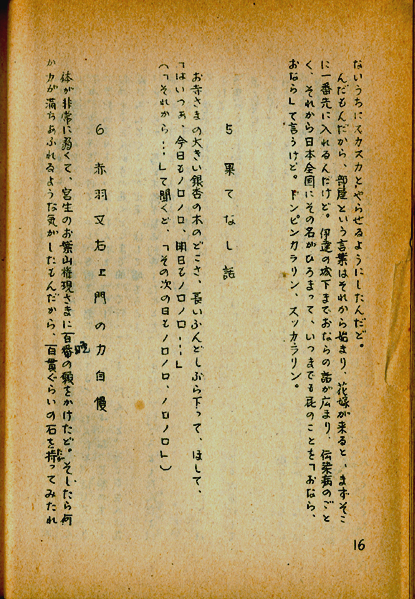 ないうちにスカスカとやらせるようにしたんだど。
んだもんだから、部屋という言葉はそれから始まり、花嫁が来ると、まずそこ
に一番先に入れるんだけど。伊達の城下までおならの話が広まり、伝染病のごと
く、それから日本全国にその名がひろまって、いつまでも屁のことを「おなら、
おなら」て言うけど。ドンピンカラリン、スッカラリン。
5 果てなし話
お寺さまの大きい銀杏の木のどこさ、長いふんどしぶら下って、ほして、
「はいつぁ、今日もノロノロ、明日もノロノロ……」
(「それから……」て聞くど、「その次の日もノロノロ、ノロノロ」)
6 赤羽又右ェ門の力自慢
体が非常に弱くて、宮生のお葉山権現さまに百晩の願をかけたど。そしたら何
か力が満ちあふれるような気がしたもんだから、百貫ぐらいの石を持ってみたれ
16